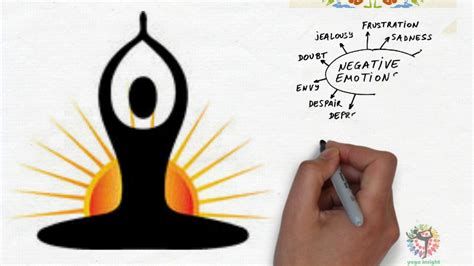 FRUSTRATION
JEALOUSY
SADNESS
DOUBT
NEGATIVE
EMOTION
ENVY
DESPAIR
DEPR
yoga insight